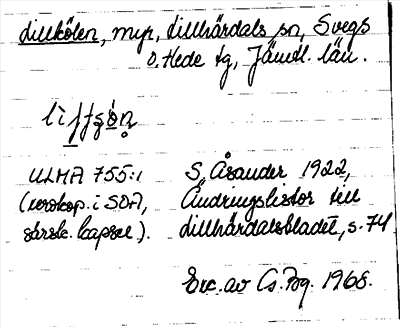 Lillkölen, myr, Lillhärdals sn, Svegs
o. Hede tg, Jämtl. län.
ULMA 755:1
(xerokop. i SOA,
särsk. kapsel).
S. Åsander 1922,
Ändringslistor till
Lillhärdalsbladet, s. 74
Exc. av Cs. Bg. 1968.